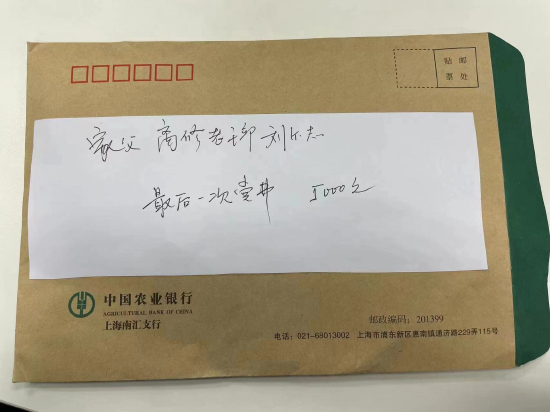 贴 邮
票 处
家父 离修老干部 刘志
最后一次党费 5000元
中国农业银行
AGRICULTURAL BANK OF CHINA
上海南汇支行
邮政编码：201399
电话：021-68013002 上海市浦东新区惠南镇通济路229弄115号